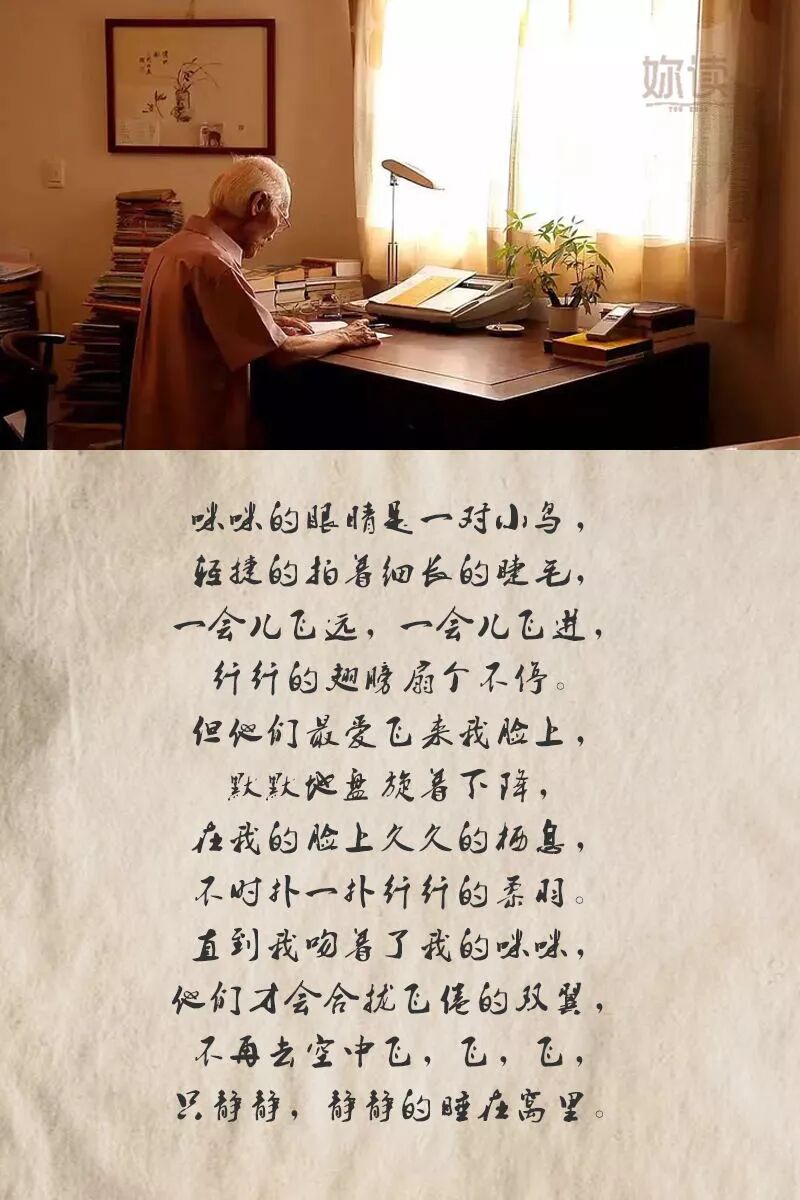 妳读
咪咪的眼睛是一对小鸟，
轻捷的拍着细长的睫毛，
一会儿飞远，一会儿飞进，
纤纤的翅膀扇个不停。
但他们最爱飞来我脸上，
默默地盘旋着下降，
在我的脸上久久的栖息，
不时扑一扑纤纤的柔羽。
直到我吻着了我的咪咪，
他们才会合拢飞倦的双翼，
不再去空中飞，飞，飞，
只静静，静静的睡在窝里。